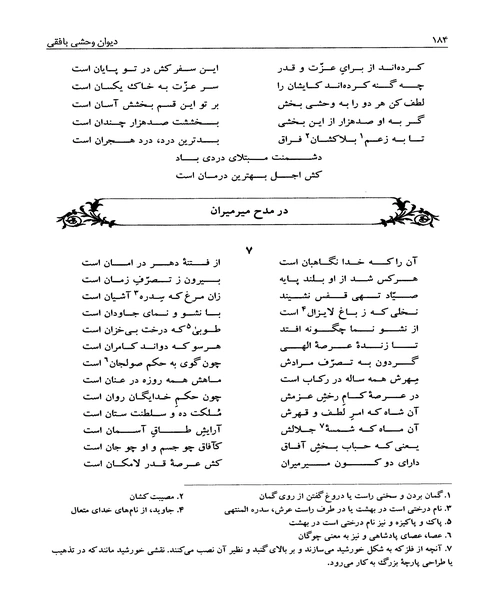 ۱۸۴ دیوان وحشی بافقی
کرده‌اند از برای عزّت و قدر این سفر کش در تو پایان است
چه گنه کرده‌اند کایشان را سر عزّت به خاک یکسان است
لطف کن هر دو را به وحشی بخش بر تو این قسم بخشش آسان است
گر به او صدهزار از این بخشی بخششت صدهزار چندان است
تا به زعم۱ بلاکشان۲ فراق بدترین درد، درد هجران است
دشمنت مبتلای دردی باد
کش اجل بهترین درمان است
در مدح میرمیران
۷
آن را که خدا نگاهبان است از فتنهٔ دهر در امان است
هرکس شد از او بلند پایه بیرون ز تصرّف زمان است
صیّاد تهی قفس نشیند زان مرغ که سِدره۳ آشیان است
نخلی که ز باغ لایزال۴ است با نشو و نمای جاودان است
از نشو نما چگونه افتد طوبیٰ۵ که درخت بی‌خزان است
تا زندهٔ عرصهٔ الهی هرسو که دواند کامران است
گردون به تصرّف مرادش چون گوی به حکم صولجان۶ است
مِهرش همه ساله در رکاب است ماهش همه روزه در عنان است
در عرصهٔ کام رخش عزمش چون حکم خدایگان روان است
آن شاه که امرِ لطف و قهرش مُلکت ده و سلطنت ستان است
آن ماه که شمسهٔ۷ جلالش آرایشِ طاقِ آسمان است
یعنی که حباب بخشِ آفاق کآفاق چو جسم و او چو جان است
دارای دو کَون میرمیران کش عرصهٔ قدر لامکان است
۱. گمان بردن و سخنی راست یا دروغ گفتن از روی گمان ۲. مصیبت کشان
۳. نام درختی است در بهشت یا در طرف راست عرش، سدره المنتهی ۴. جاوید، از نام‌های خدای متعال
۵. پاک و پاکیزه و نیز نام درختی است در بهشت
۶. عصا، عصای پادشاهی و نیز به معنی چوگان
۷. آنچه از فلز که به شکل خورشید می‌سازند و بر بالای گنبد و نظیر آن نصب می‌کنند. نقشی خورشید مانند که در تذهیب
یا طراحی پارچهٔ بزرگ به کار می‌رود.